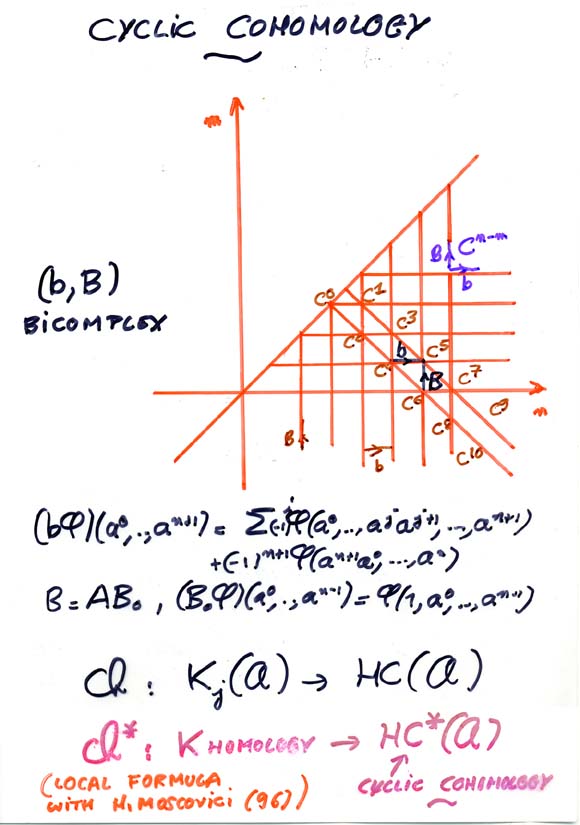 CYCLIC COHOMOLOGY
m
B C^{n-m}
b
(b, B)
BICOMPLEX
C^0 C^1
C^2 C^3
b
C^4 C^5
B
C^6 C^7
C^8 C^9
C^{10}
n
B
b
(bφ)(a^0,..,a^{n+1}) = Σ(-1)^j φ(a^0,..,a^j a^{j+1},..,a^{n+1})
+(-1)^{n+1} φ(a^{n+1}a^0,...,a^n)
B = AB_0 , (B_0φ)(a^0,..,a^{n-1}) = φ(1,a^0,..,a^{n-1})
Ch : K_j(A) → HC(A)
Ch* : K HOMOLOGY → HC*(A)
(LOCAL FORMULA
WITH H. MOSCOVICI (96))
↑
CYCLIC COHOMOLOGY